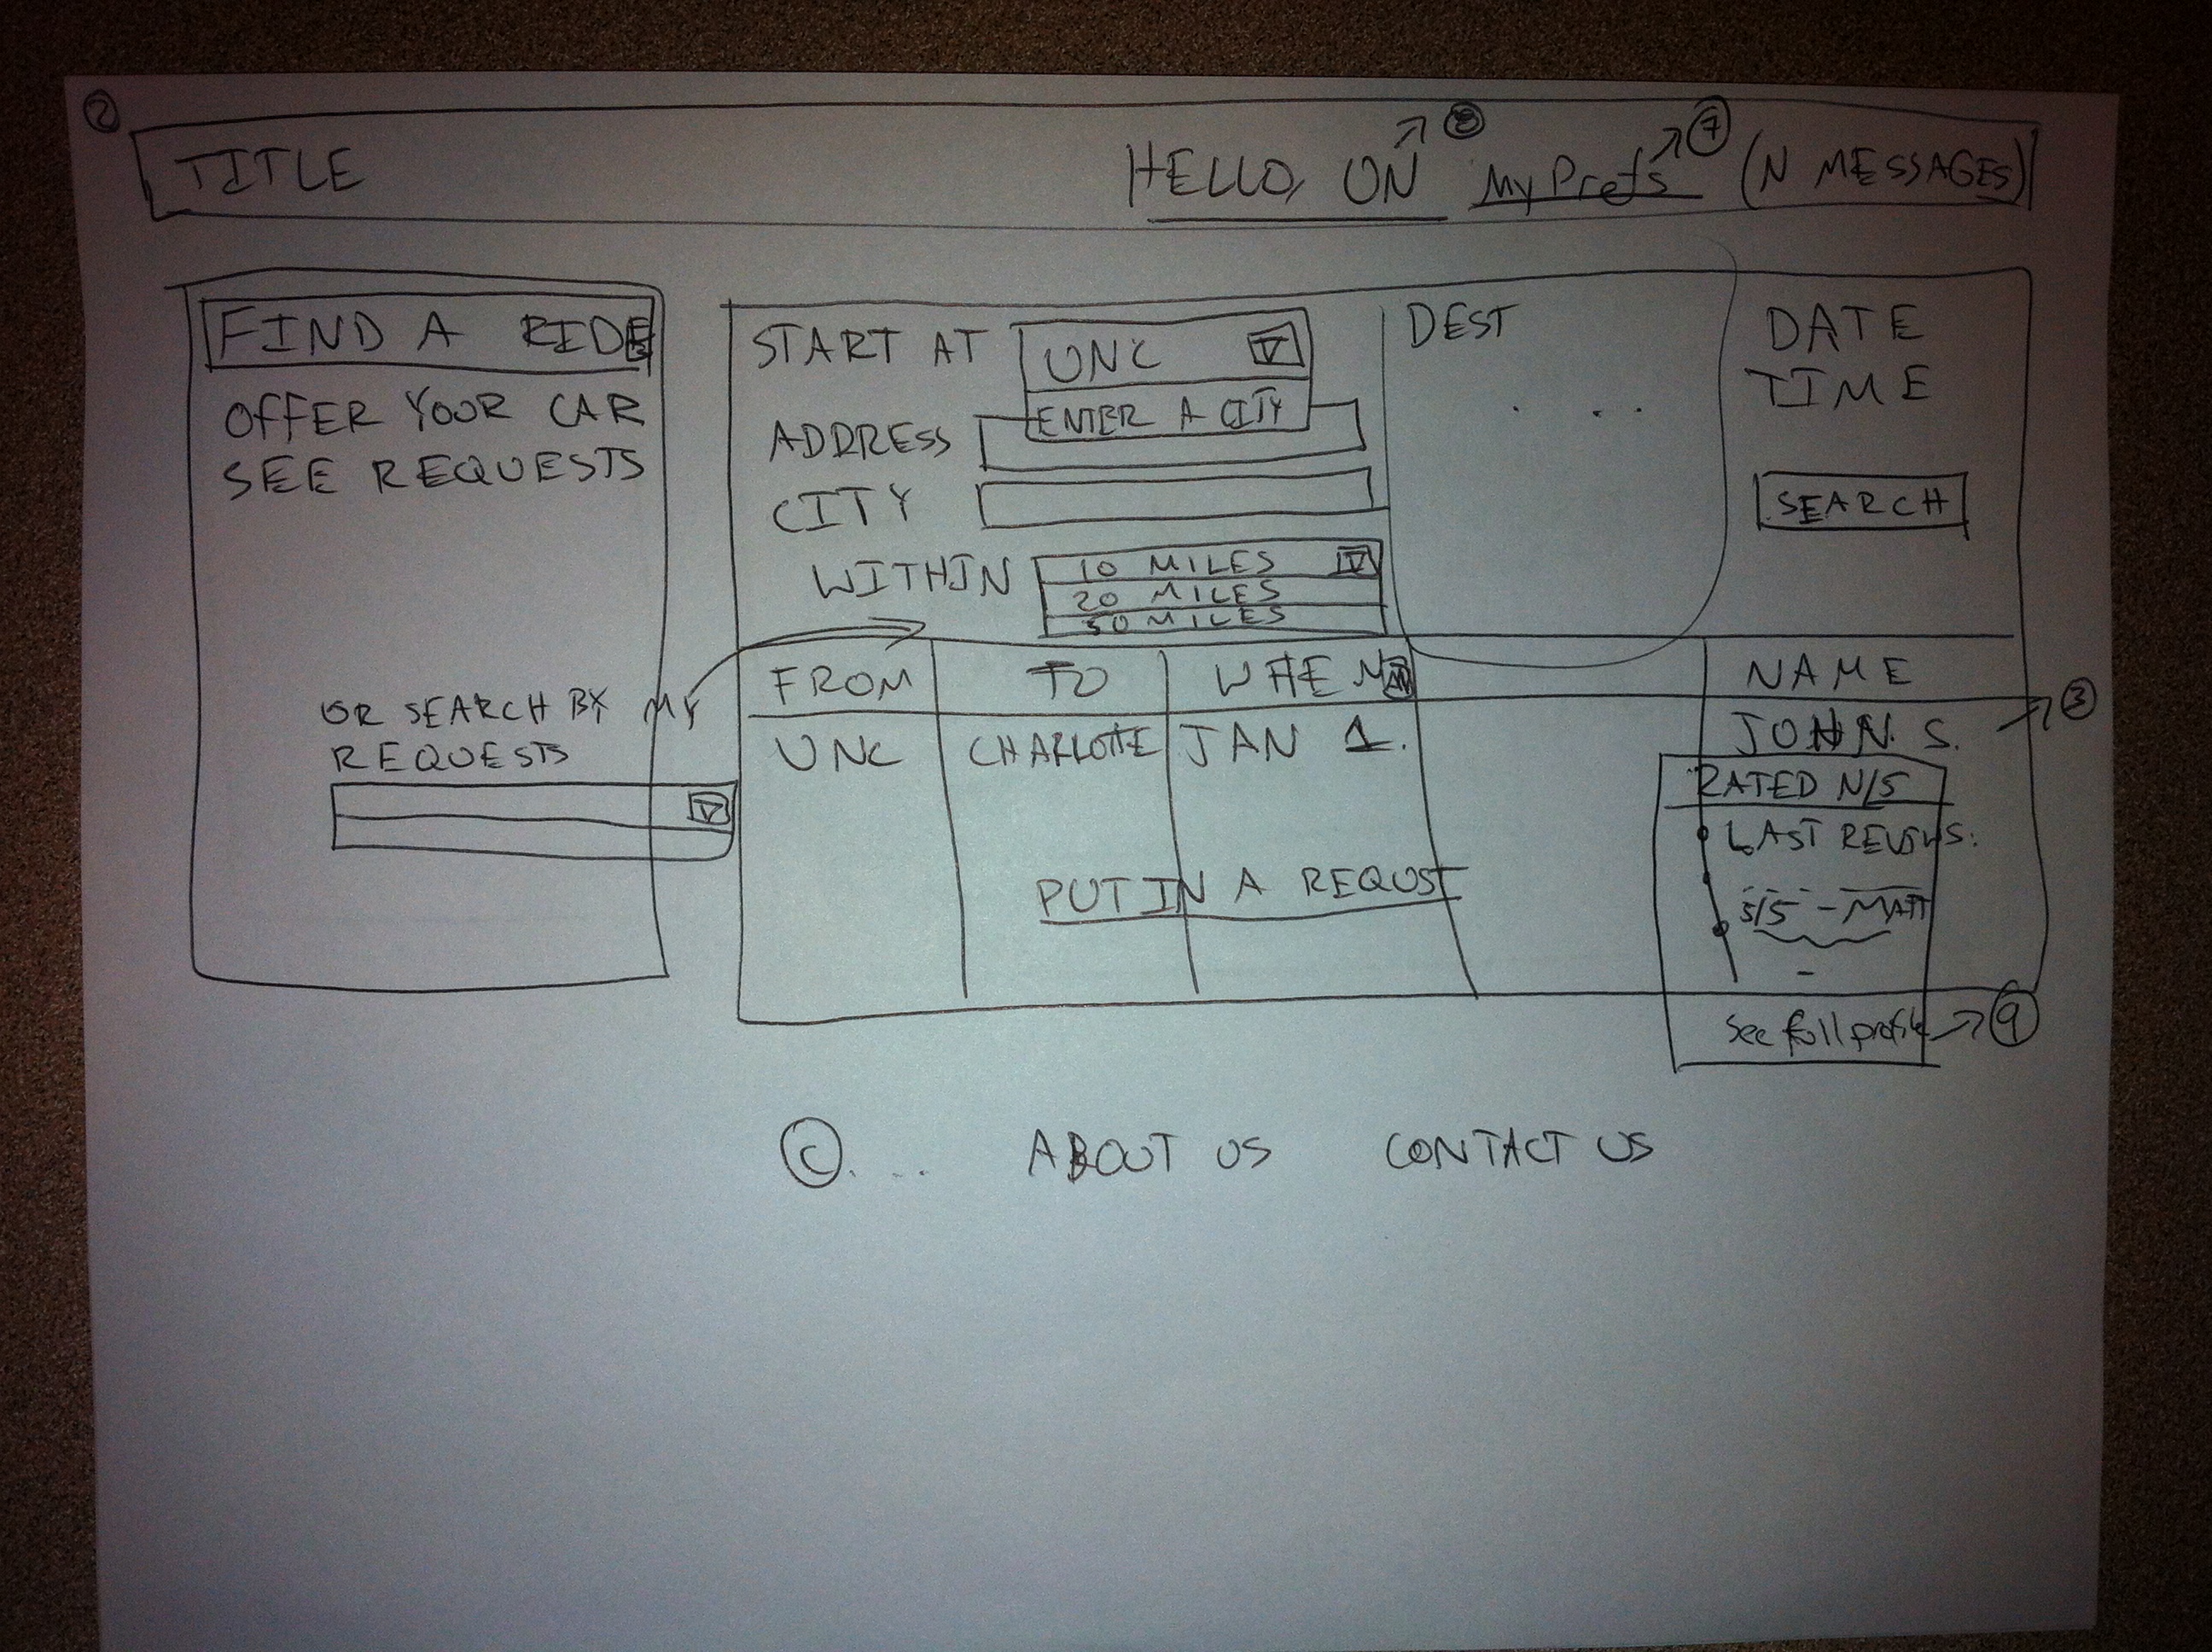 2
TITLE
HELLO, UN
8
My Prefs
7
(N MESSAGES)
FIND A RIDE
OFFER YOUR CAR
SEE REQUESTS
OR SEARCH BY MY
REQUESTS
START AT
UNC
ENTER A CITY
ADDRESS
CITY
WITHIN
10 MILES
20 MILES
50 MILES
DEST
...
DATE
TIME
SEARCH
FROM
TO
WHEN
NAME
UNC
CHARLOTTE
JAN 1.
JOHN S.
3
PUT IN A REQUST
RATED N/5
LAST REVEWS:
5/5 - MATT
-
see full profile
9
C ...
ABOUT US
CONTACT US